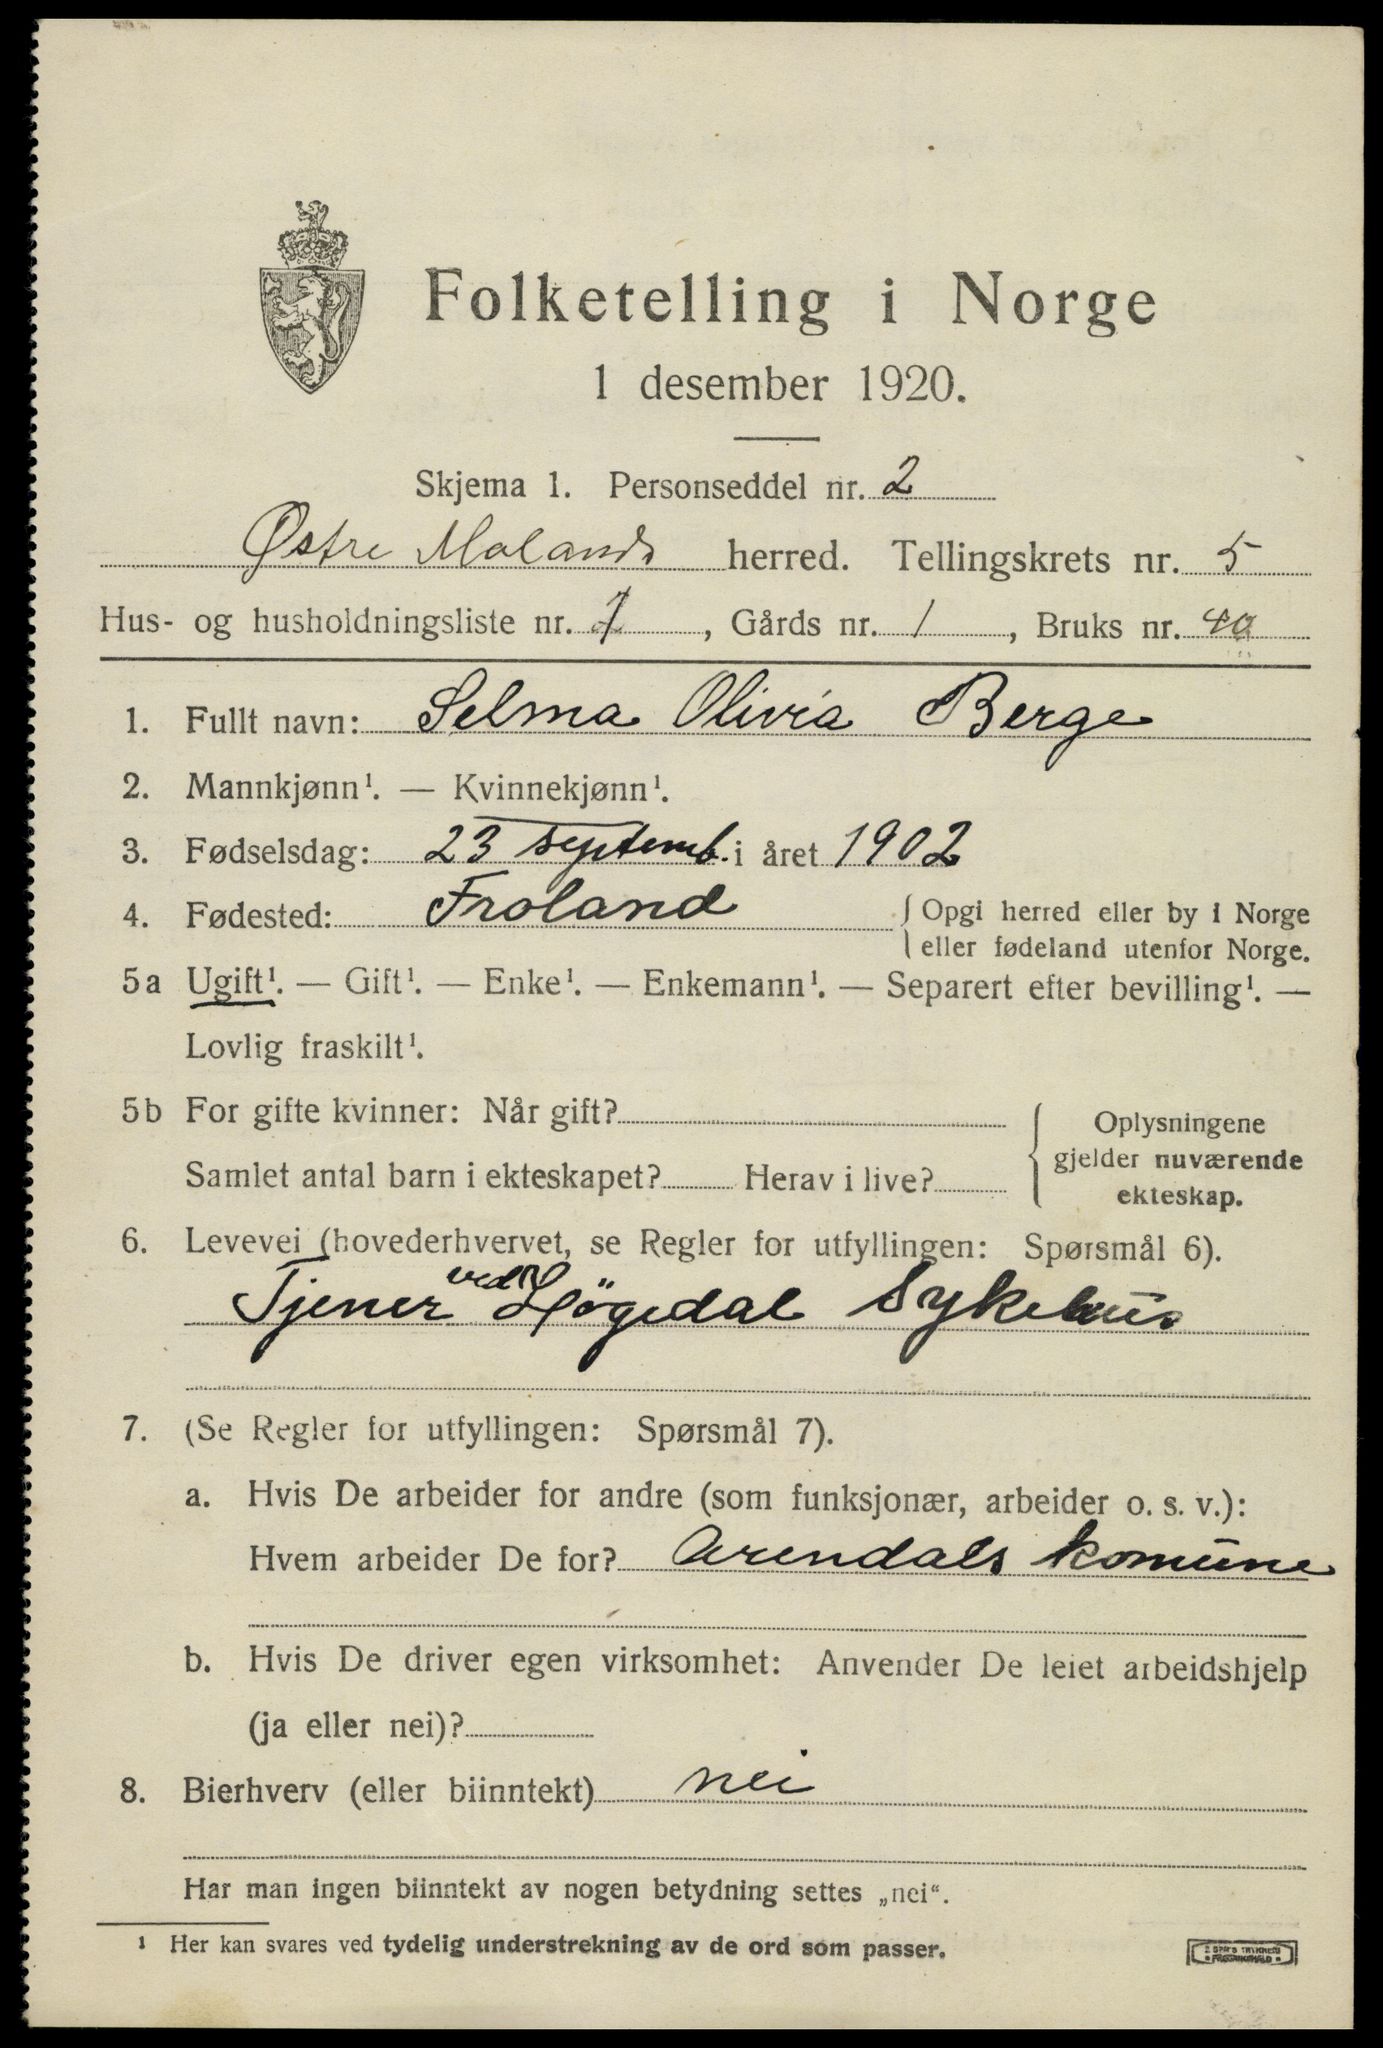 Folketelling i Norge
1 desember 1920.
Skjema 1. Personseddel nr. 2
Østre Molands herred. Tellingskrets nr. 5
Hus- og husholdningsliste nr. 1, Gårds nr. 1, Bruks nr. 40
1. Fullt navn: Selma Olivia Berge
2. Mannkjønn¹. — Kvinnekjønn¹.
3. Fødselsdag: 23 septemb. i året 1902
4. Fødested: Froland { Opgi herred eller by i Norge
eller fødeland utenfor Norge.
5a Ugift¹. — Gift¹. — Enke¹. — Enkemann¹. — Separert efter bevilling¹. —
Lovlig fraskilt¹.
5b For gifte kvinner: Når gift?
Samlet antal barn i ekteskapet? Herav i live?
Oplysningene
gjelder nuværende
ekteskap.
6. Levevei (hovederhvervet, se Regler for utfyllingen: Spørsmål 6).
Tjener ved Högedal Sykehus
7. (Se Regler for utfyllingen: Spørsmål 7).
a. Hvis De arbeider for andre (som funksjonær, arbeider o. s. v.):
Hvem arbeider De for? Arendals komune
b. Hvis De driver egen virksomhet: Anvender De leiet arbeidshjelp
(ja eller nei)?
8. Bierhverv (eller biinntekt) nei
Har man ingen biinntekt av nogen betydning settes „nei“.
¹ Her kan svares ved tydelig understrekning av de ord som passer.